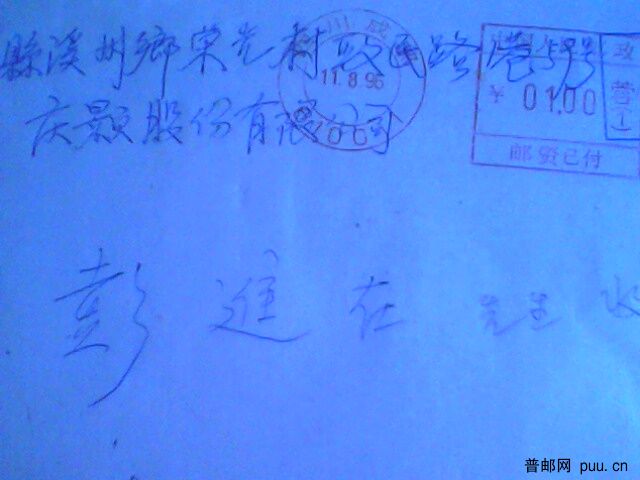 川成
縣溪州鄉栄光村 民路 巷5号
11.8.95
¥ 01.00
政
营
(1)
庆颢股份有限公司
邮资已付
彭進在 先生 收
普邮网 puu.cn